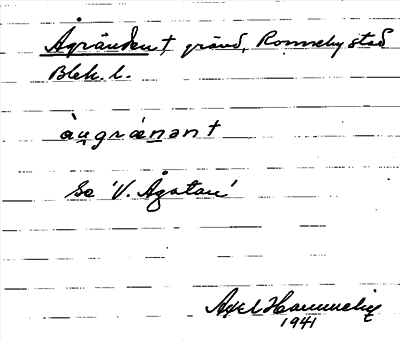 Ågränden † gränd, Ronneby stad
Blek. l.
àu̯grænən †
Se 'V. Ågatan'
Axel Hammelig
1941